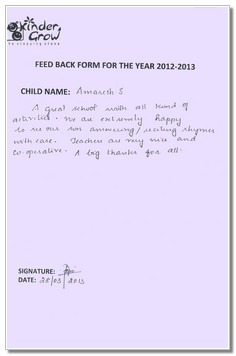 Kinder
Grow
FEED BACK FORM FOR THE YEAR 2012-2013
CHILD NAME: Amaresh S
A great school with all kind of
activities. We are extremely happy
to see our son answering/reciting rhymes
with care. Teachers are very nice and
co-operative. A big thanks for all.
SIGNATURE:
DATE: 28/03/2013